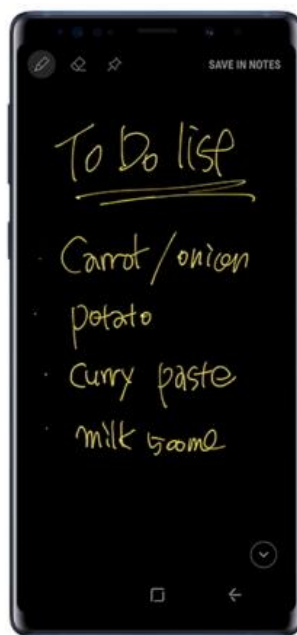 SAVE IN NOTES
To Do list
· Carrot / onion
· potato
· curry paste
· milk 500ml